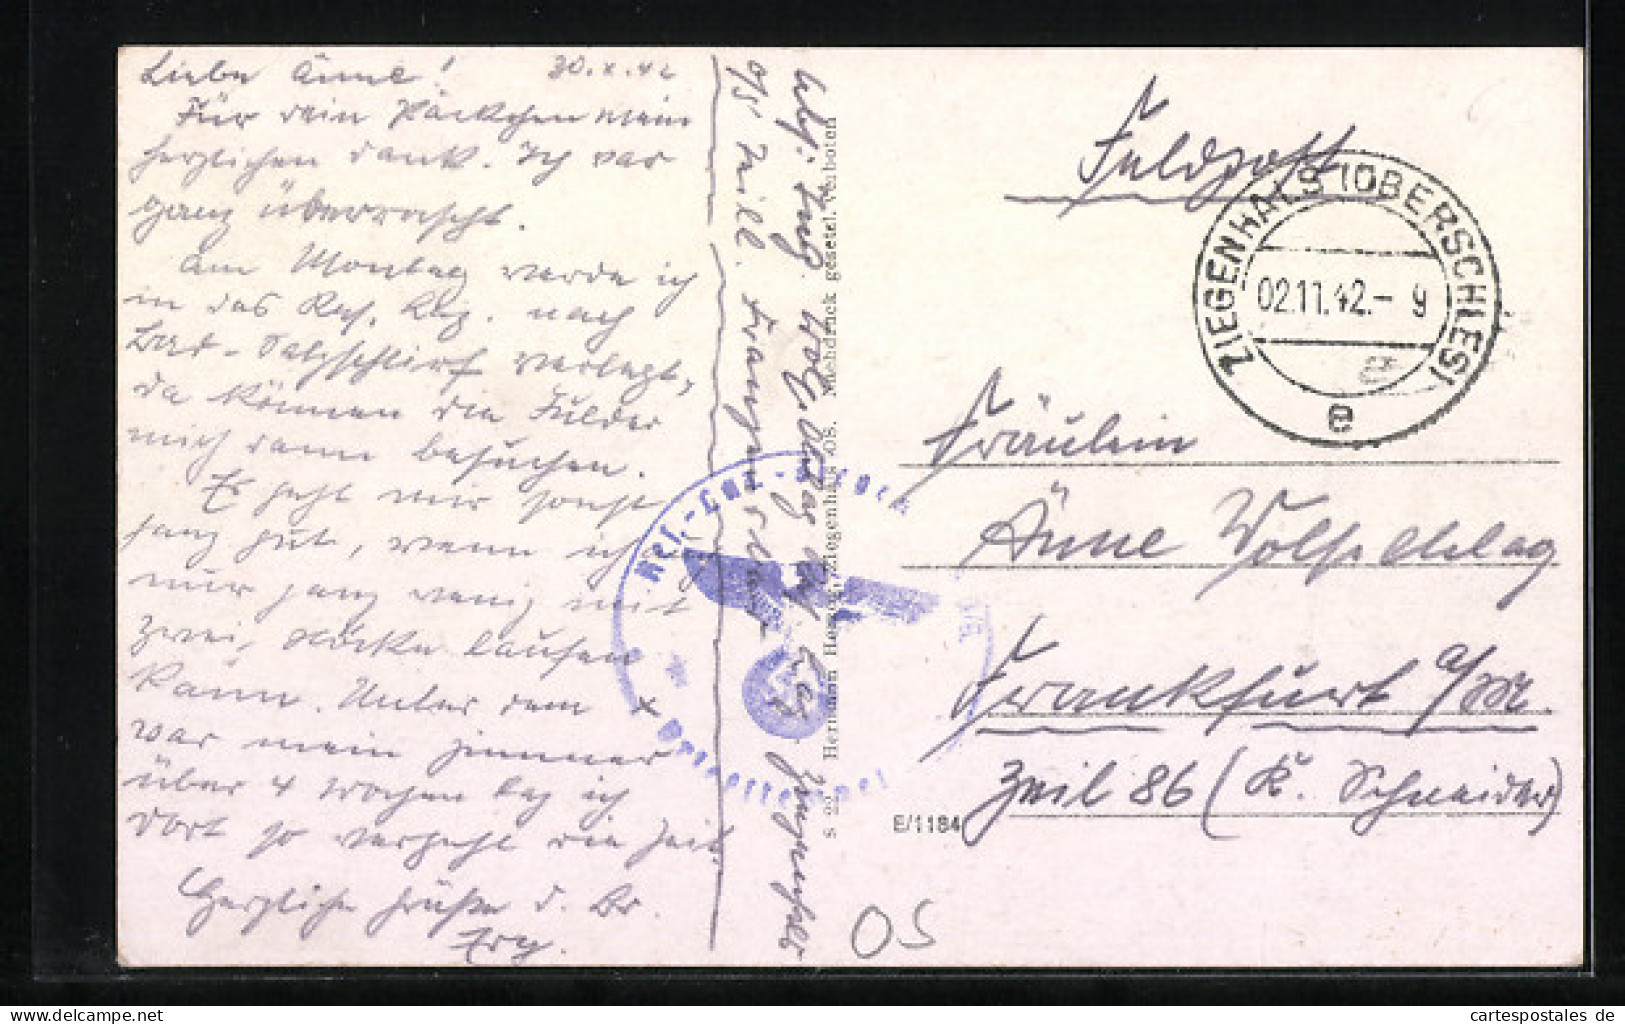 Liebe Änne! 30.X.42
Für dein Päckchen mein
herzlichen Dank. Ich war
ganz überrascht.
Am Montag werde ich
in das Res. Laz. nach
Bad-Salzschlirf verlegt,
da können die Fulder
mich dann besuchen.
Es geht mir sonst
ganz gut, wenn ich
nur ganz wenig mit
zwei Stöcke laufen
kann. Unter dem x
war mein Zimmer
über 4 Wochen lag ich
dort so vergeht die Zeit.
Herzliche Grüße d. Br.
Abs:
O/S
S 22 Hermann Ziegenhals OS. Nachdruck gesetzl. verboten
Feldpost
ZIEGENHALS (OBERSCHLES)
02.11.42.- 9
e
Fräulein
Änne Wolfschlag
Frankfurt a/M.
Zeil 86 (K. Schneider)
E/1184
OS
Delcampe.net
cartespostales de